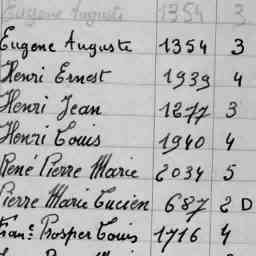 Eugene Auguste 1354 3
Eugene Auguste 1354 3
Henri Ernest 1939 4
Henri Jean 1277 3
Henri Louis 1940 4
René Pierre Marie 2034 5
Pierre Marie Lucien 687 2 D
Franc. Prosper Louis 1716 4